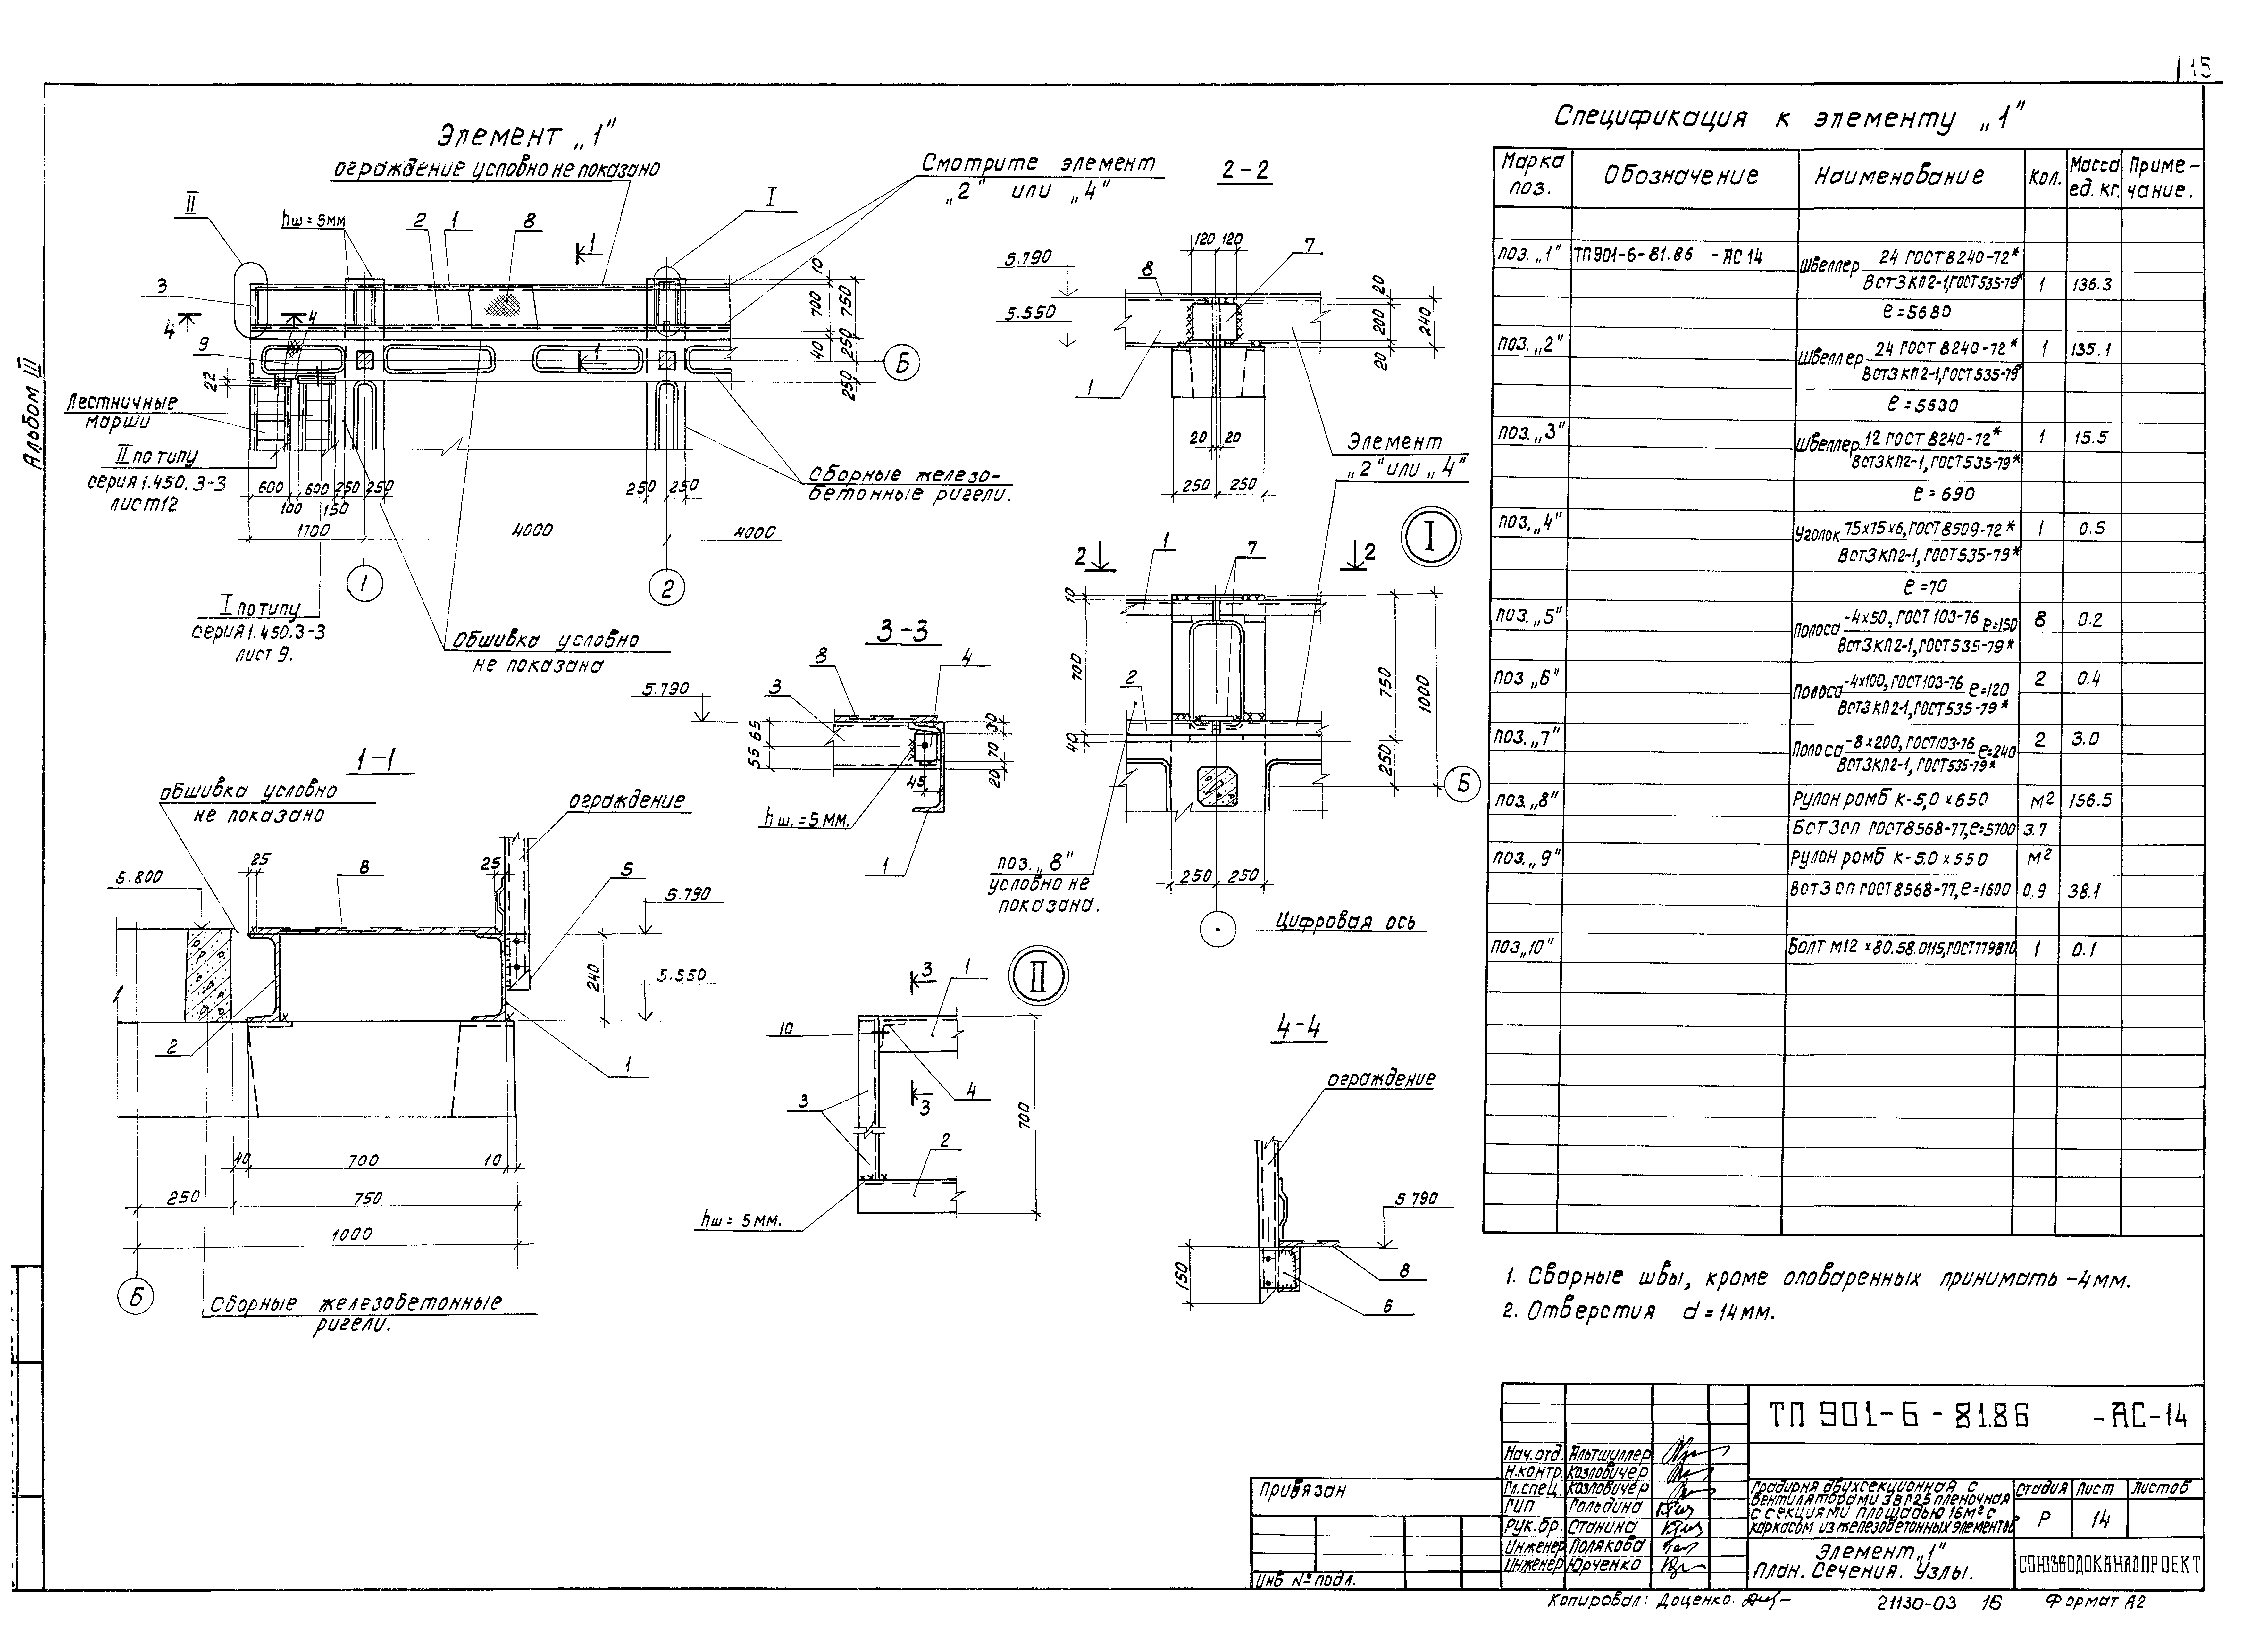 15
Альбом III
Элемент „1"
ограждение условно не показано
Смотрите элемент
„2" или „4"
II
hш=5мм
2
1
8
1
I
3
4
4
9
1
10
700
750
40
250
250
22
Б
Лестничные
марши
II по типу
серия 1.450.3-3
лист 12
600
600
250
250
100
150
250
250
1700
4000
4000
1
2
Сборные железо-
бетонные ригели.
I по типу
серия 1.450.3-3
лист 9.
Обшивка условно
не показана
2-2
120
120
7
5.790
8
5.550
20
200
240
20
1
20
20
Элемент
„2" или „4"
250
250
I
2
1
7
2
10
700
750
1000
2
40
250
Б
поз. „8"
условно не
показана.
250
250
Цифровая ось
3-3
8
4
5.790
3
65
55
30
70
20
45
hш.=5мм.
1
1-1
обшивка условно
не показано
ограждение
25
8
25
5
5.800
5.790
5.550
240
2
1
40
700
10
250
750
1000
Б
Сборные железобетонные
ригели.
II
3
1
10
4
3
3
2
700
hш=5мм.
4-4
ограждение
5.790
150
8
6
Спецификация к элементу „1"
Марка поз. Обозначение Наименование Кол. Масса ед. кг. Приме-чание.
поз. „1" ТП901-6-81.86 -АС14 Швеллер 24 ГОСТ 8240-72*
ВСт3КП2-1, ГОСТ535-79* 1 136.3
ℓ=5680
поз. „2" Швеллер 24 ГОСТ 8240-72* 1 135.1
ВСт3КП2-1, ГОСТ535-79*
ℓ=5630
поз. „3" Швеллер 12 ГОСТ 8240-72* 1 15.5
ВСт3КП2-1, ГОСТ535-79*
ℓ=690
поз. „4" Уголок 75х75х6, ГОСТ 8509-72* 1 0.5
ВСт3КП2-1, ГОСТ535-79*
ℓ=70
поз. „5" Полоса -4х50, ГОСТ 103-76 ℓ=150 8 0.2
ВСт3КП2-1, ГОСТ535-79*
поз „6" Полоса -4х100, ГОСТ103-76 ℓ=120 2 0.4
ВСт3КП2-1, ГОСТ535-79*
поз. „7" Полоса -8х200, ГОСТ103-76 ℓ=240 2 3.0
ВСт3КП2-1, ГОСТ535-79*
поз. „8" Рулон ромб К-5,0 х 650 м² 156.5
БСт3сп ГОСТ8568-77, ℓ=5700 3.7
поз. „9" Рулон ромб К-5.0 х 550 м²
ВСт3сп ГОСТ8568-77, ℓ=1600 0.9 38.1
поз „10" Болт М12 х 80.58.0115, ГОСТ779870 1 0.1
1. Сварные швы, кроме оповаренных принимать -4мм.
2. Отверстия d=14мм.
ТП 901-6-81.86 -АС-14
Нач.отд. Альтшуллер
Н.контр. Козловичер
Гл.спец. Козловичер
ГИП Гольдина
Рук.бр. Станина
Инженер Полякова
Инженер Юрченко
Привязан
Инв № подл.
Градирня двухсекционная с
вентиляторами 3ВГ25 пленочная
с секциями площадью 16м² с
каркасом из железобетонных элементов
Стадия Лист Листов
Р 14
Элемент „1"
План. Сечения. Узлы.
СОЮЗВОДОКАНАЛПРОЕКТ
Копировал: Доценко.
21130-03 16
Формат А2